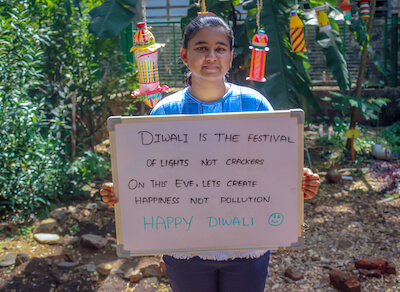 DIWALI IS THE FESTIVAL
OF LIGHTS NOT CRACKERS
ON THIS EVE, LETS CREATE
HAPPINESS NOT POLLUTION.
HAPPY DIWALI